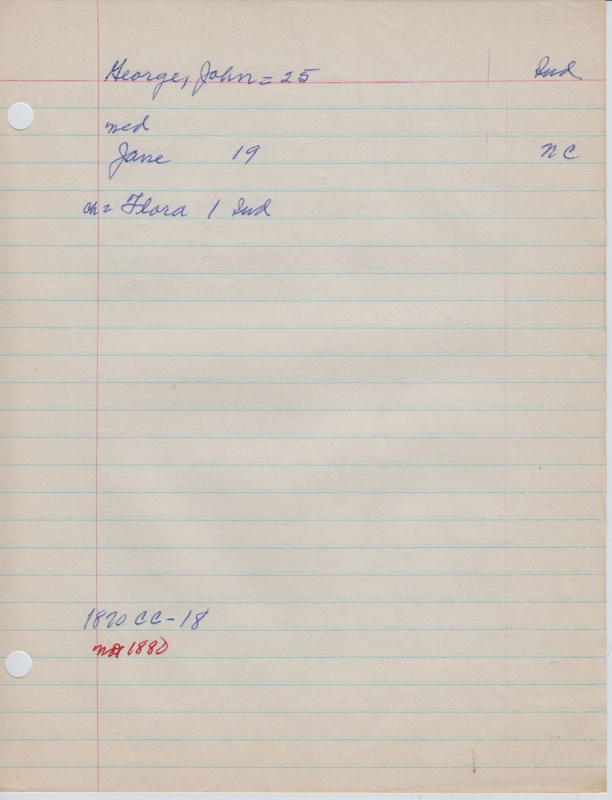 George, John = 25 Ind
med
Jane 19 NC
ch = Flora 1 Ind
1870 CC - 18
not 1880